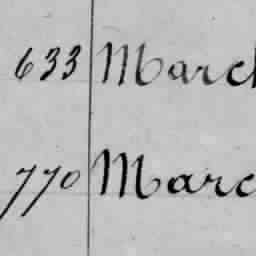 633 March
770 Marc